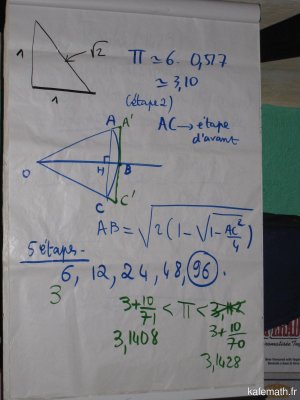 1
√2
1
π ≃ 6 · 0,517
≃ 3,10
(étape 2)
AC → étape
d'avant
A A'
O
H
B
C C'
AB = √(2(1 - √(1 - AC²/4)))
5 étapes -
6, 12, 24, 48, 96.
3
3+10/71 < π <
3,1408
3+10/70
3,1428
kafemath.fr